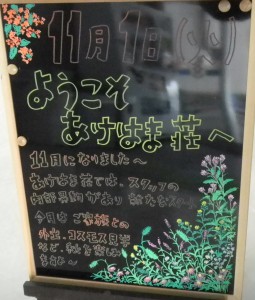 11月1日(火)
ようこそ
あけはま荘へ
11月になりました〜
あけはま荘では、スタッフの
内部異動があり 新たな
今月は ご家族との
外出、コスモス見学
など、秋を楽しみ
ます〜